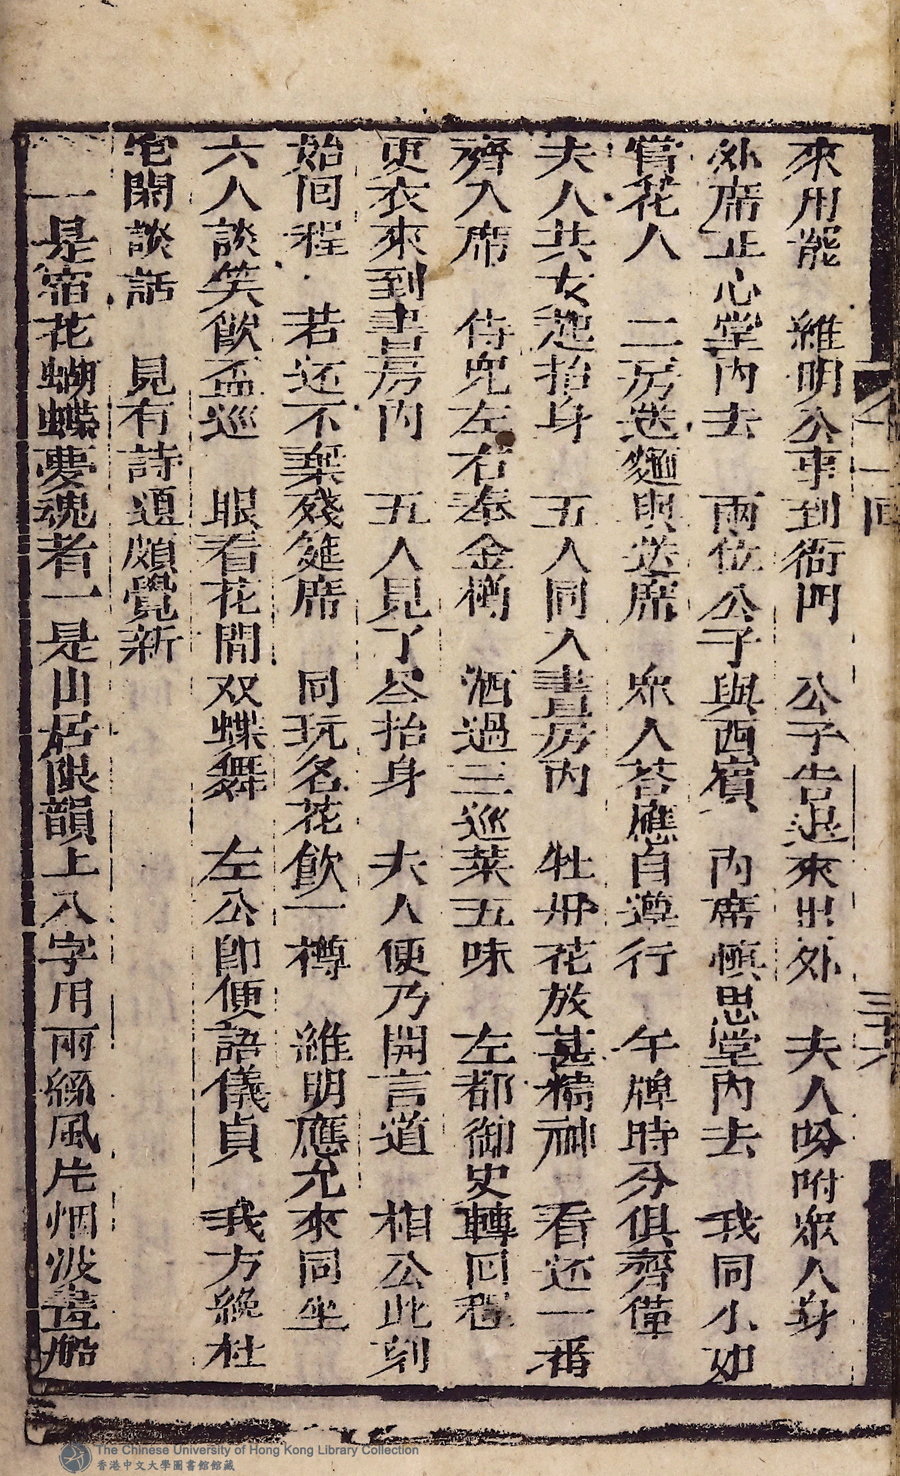 來用罷　維明公事到衙門　公子告退來出外　夫人吩咐衆人身
外席正心堂內去　兩位公子與西賓　內席慎思堂內去　我同小如
嘗花人　二房送麵與送席　衆人荅應自遵行　午牌時分俱齊備
夫人共女起抬身　五人同入書房內　牡丹花放甚精神　看还一番
齊入席　侍児左右奉金樽　酒過三巡菜五味　左都御史轉回程
更衣來到書房內　五人見了尽抬身　夫人便乃開言道　相公此刻
始回程　若还不棄殘筵席　同玩名花飲一樽　維明應允來同坐
六人談笑飲盃巡　眼看花間双蝶舞　左公即便語儀貞　我方絶杜
宅閑談話　見有詩題頗覺新
一是宿花蝴蝶夢魂者一是山居限韻上八字用雨絲風片烟波畫船
一回
三十六
The Chinese University of Hong Kong Library Collection
香港中文大學圖書館館藏